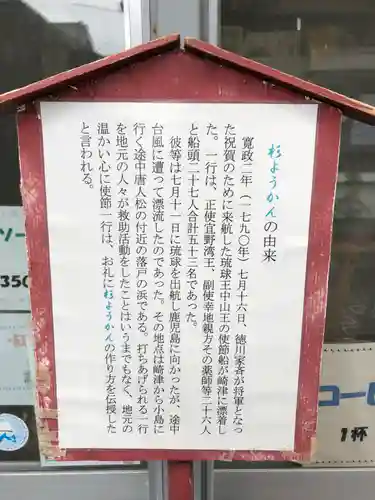 杉ようかんの由来
寛政二年(一七九〇年)七月十六日、徳川家斉が将軍となっ
た祝賀のために来航した琉球王中山王の使節船が崎津に漂着し
た。一行は、正使宜野湾王、副使幸地親方その薬師等二十六人
と船頭二十七人合計五十三名であった。
彼等は七月十一日に琉球を出航し鹿児島に向かったが、途中
台風に遭って漂流したのであった。その地点は崎津から小島に
行く途中唐人松の付近の落戸の浜である。打ちあげられる一行
を地元の人々が救助活動をしたことはいうまでもなく、地元の
温かい心に使節一行は、お礼に杉ようかんの作り方を伝授した
と言われる。
ソー
350
コーヒ
1杯